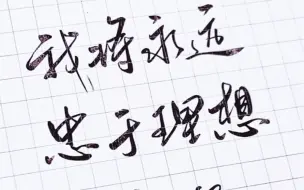 我将永远
忠于理想